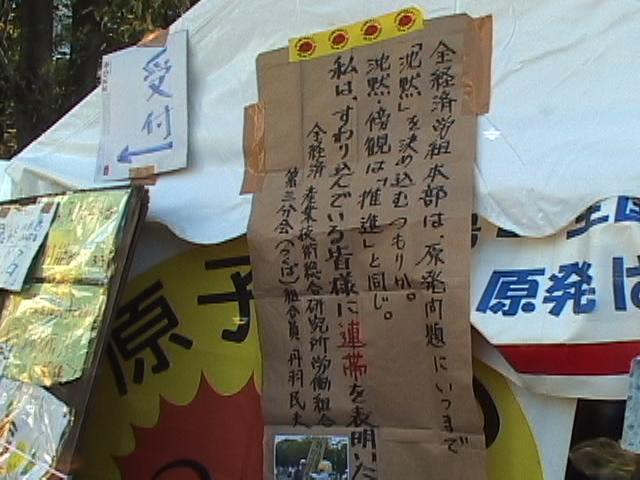 受付
全経済労組本部は、原発問題にいつまで
「沈黙」を決め込むつもりか。
沈黙・傍観は「推進」と同じ。
私は、すわり込んでいる皆様に連帯を表明
全経済 産業技術総合研究所労働組合
第三分会(つくば)組合員 丹羽民夫
原子
原発は